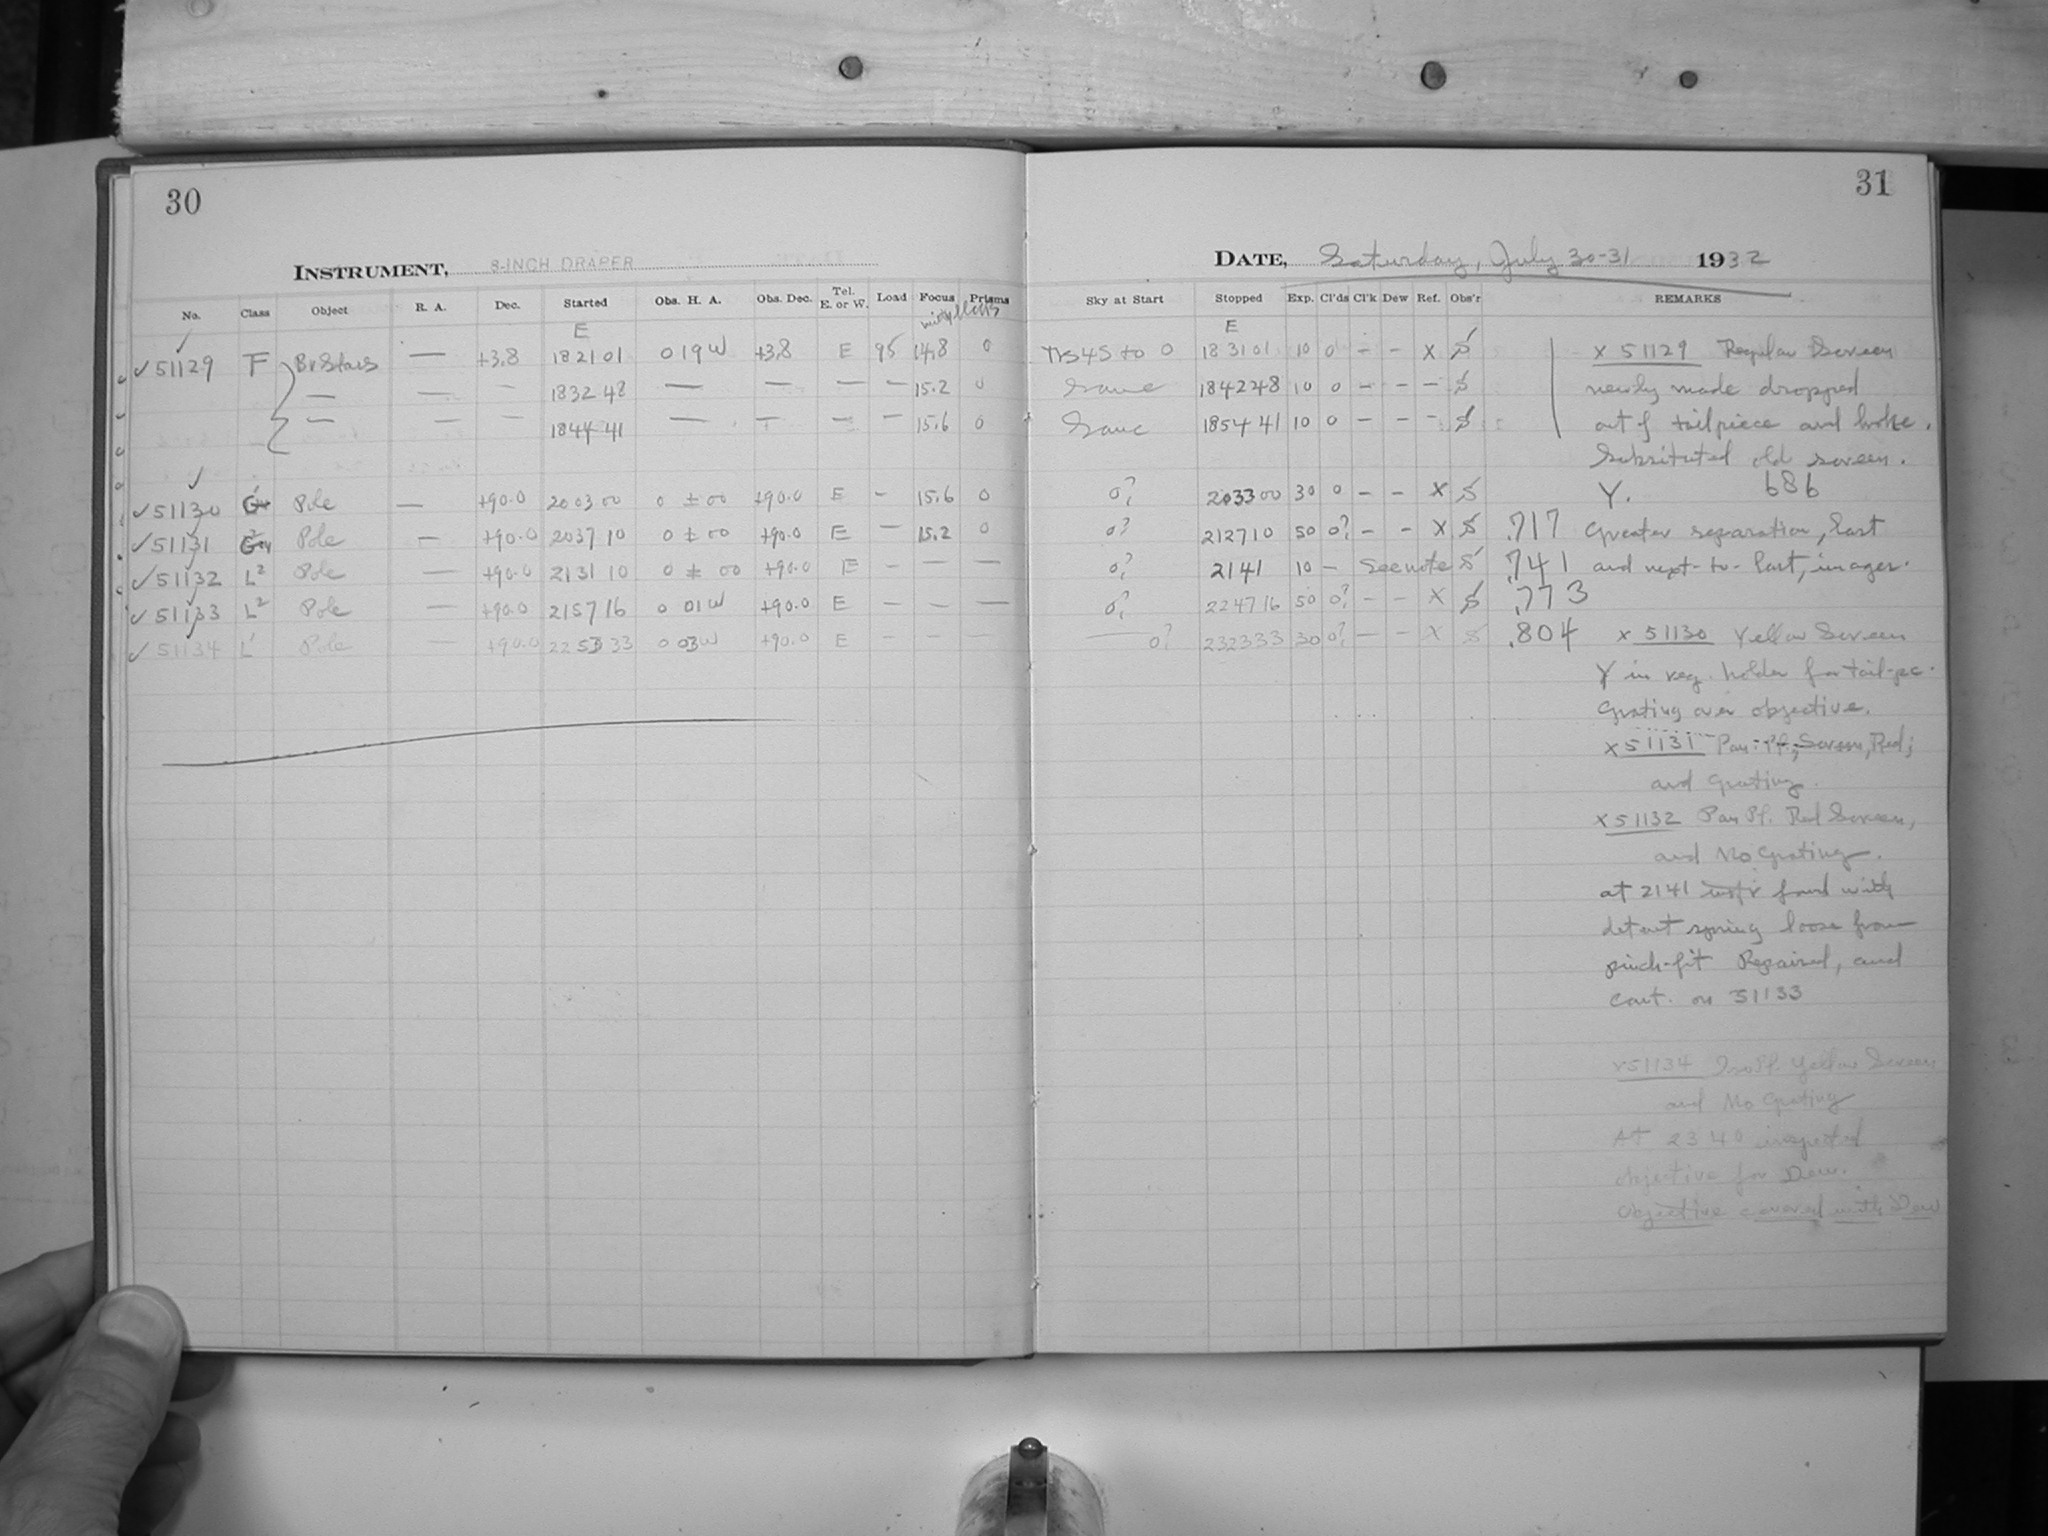 30
INSTRUMENT, 8-INCH DRAPER
No. Class Object R. A. Dec. Started Obs. H. A. Obs. Dec. Tel. E. or W. Load Focus Prisms
E
✓51129 F Br Stars — +3.8 182101 0 19 W +3.8 E 95 14.8 0
— — — 183248 — — — — 15.2 0
— — — 184441 — — — — 15.6 0
✓51130 Pole — +90.0 200300 0 ± 00 +90.0 E — 15.6 0
✓51131 Pole — +90.0 203710 0 ± 00 +90.0 E — 15.2 0
✓51132 L² Pole — +90.0 213110 0 ± 00 +90.0 E — — —
✓51133 L² Pole — +90.0 215716 0 01 W +90.0 E — — —
✓51134 L' Pole — +90.0 225333 0 03 W +90.0 E — — —
31
DATE, Saturday, July 30-31 1932
Sky at Start Stopped Exp. Cl'ds Cl'k Dew Ref. Obs'r REMARKS
E
to 0 183101 10 0 – – X S
Same 184248 10 0 – – – S
Same 185441 10 0 – – – S
0? 203300 30 0 – – X S
0? 212710 50 0? – – X S .717
0? 2141 10 – See note S .741
0? 224716 50 0? – – X S .773
— 0? 232333 30 0? – – X S .804
x 51129 Regular Screen
newly made dropped
out of tailpiece and broke.
Substituted old screen.
Y. 686
Greater separation, last
and next-to-last, images.
x 51130 Yellow Screen
Y in reg. holder for tail-pc.
Grating over objective.
x 51131 Pan. Pl., Screen, Red;
and Grating.
x 51132 Pan Pl. Red Screen,
and No Grating.
at 2141 instr found with
detent spring loose from
Repaired, and
cont. on 51133
x 51134 Iso Pl. Yellow Screen
and No Grating
At 2340 inspected
objective for Dew.
Objective covered with Dew